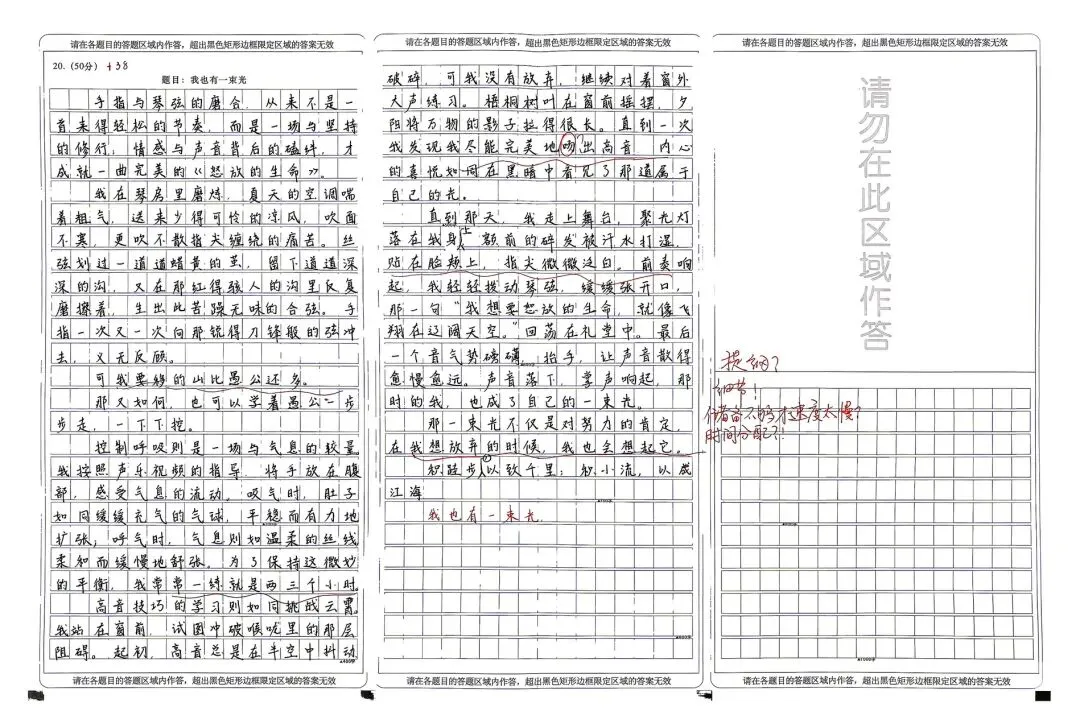 请在各题目的答题区域内作答，超出黑色矩形边框限定区域的答案无效
20.（50分）+38
题目：我也有一束光
手指与琴弦的磨合，从来不是一
首来得轻松的节奏，而是一场与坚持
的修行；情感与声音背后的磕绊，才
成就一曲完美的《怒放的生命》。
我在琴房里磨炼，夏天的空调喘
着粗气，送来少得可怜的凉风，吹面
不寒，更吹不散指尖缠绕的痛苦。丝
弦划过一道道蜡黄的茧，留下道道深
深的沟，又在那红得骇人的沟里反复
磨擦着，生出此苦躁无味的合弦。手
指一次又一次向那锐得刀锋般的弦冲
去，义无反顾。
可我要移的山比愚公还多。
那又如何，也可以学着愚公一步
步走，一下下挖。
控制呼吸则是一场与气息的较量
我按照声乐视频的指导，将手放在腹
部，感受气息的流动。吸气时，肚子
如同缓缓充气的气球，平稳而有力地
扩张；呼气时，气息则如温柔的丝线
柔和而缓慢地舒张。为了保持这微妙
的平衡，我常常一练就是两三个小时。
高音技巧的学习则如同挑战云霄。
我站在窗前，试图冲破喉咙里的那层
阻碍。起初，高音总是在半空中抖动
▲400字
请在各题目的答题区域内作答，超出黑色矩形边框限定区域的答案无效
请在各题目的答题区域内作答，超出黑色矩形边框限定区域的答案无效
破碎，可我没有放弃，继续对着窗外
大声练习。梧桐树叶在窗前摇摆，夕
阳将万物的影子拉得很长。直到一次
我发现我尽能完美地 出高音 内心
的喜悦如同在黑暗中看见了那道属于
自己的光。
直到那天，我走上舞台，聚光灯
落在我身上，额前的碎发被汗水打湿，
贴在脸颊上，指尖微微泛白。前奏响
起，我轻轻拨动琴弦，缓缓张开口，
那一句“我想要怒放的生命，就像飞
翔在辽阔天空。”回荡在礼堂中。最后
一个音气势磅礴，抬手，让声音散得
愈慢愈远。声音落下，掌声响起，那
时的我，也成了自己的一束光。
那一束光不仅是对努力的肯定，
在我想放弃的时候，我也会想起它。
积跬步，以致千里；积小流，以成
▲700字
江海
我也有一束光.
请在各题目的答题区域内作答，超出黑色矩形边框限定区域的答案无效
请在各题目的答题区域内作答，超出黑色矩形边框限定区域的答案无效
请勿在此区域作答
提纲？
细节！
储备不够才速度太慢？
时间分配？！
请在各题目的答题区域内作答，超出黑色矩形边框限定区域的答案无效